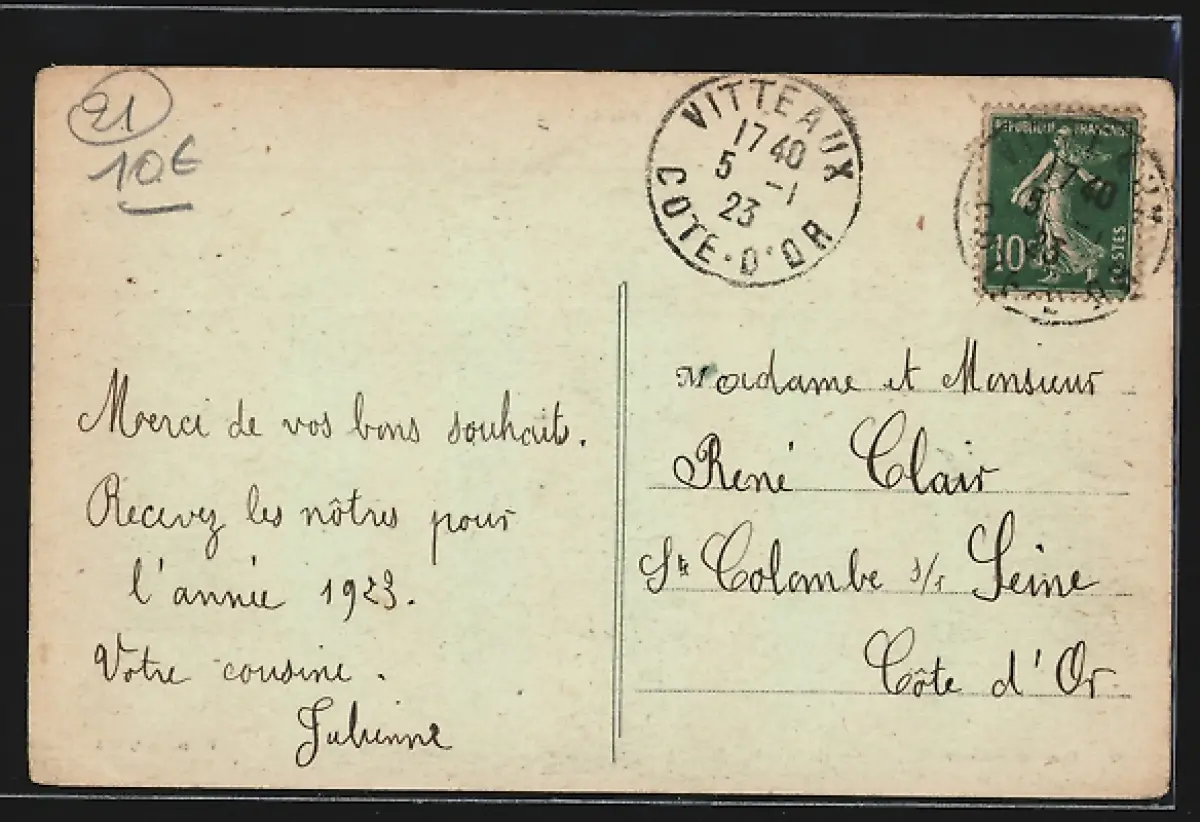 21
10€
VITTEAUX
17 40
5 -1
23
COTE-D'OR
REPUBLIQUE FRANÇAISE
10c
POSTES
17 40
5 -1
23
Merci de vos bons souhaits.
Recevez les nôtres pour
l'année 1923.
Votre cousine.
Julienne
Madame et Monsieur
René Clair
Ste Colombe s/s Seine
Côte d'Or